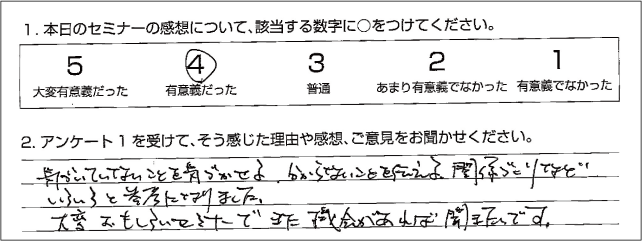 1. 本日のセミナーの感想について、該当する数字に○をつけてください。
5 4 3 2 1
大変有意義だった 有意義だった 普通 あまり有意義でなかった 有意義でなかった
2. アンケート1を受けて、そう感じた理由や感想、ご意見をお聞かせください。
気づいていないことを気づかせる、分からないことを伝える 関係づくりなど
いろいろと参考になりました。
大変おもしろいセミナーでまた機会があれば聞きたいです。